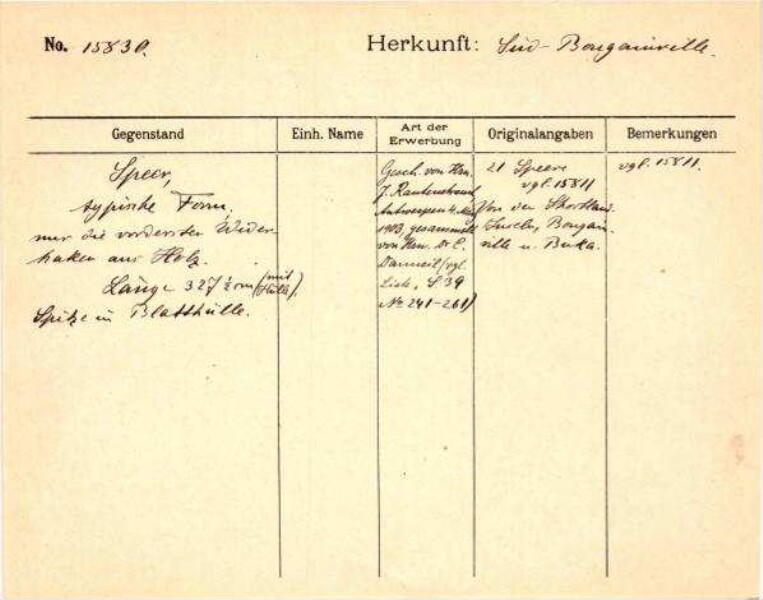 No. 15830. Herkunft: Süd-Bougainville.
Gegenstand
Einh. Name
Art der Erwerbung
Originalangaben
Bemerkungen
Speer,
typische Form,
nur die vordersten Wider-
haken aus Holz.
Länge 327 cm (mit Hülle).
Spitze in Blatthülle.
Gesch. von Hrn.
J. Rautenstrauch
Antwerpen 4. Mai
1903, gesammelt
von Hrn. Dr. C.
Danneil (vgl.
Liste, S 39
No 241-261)
21 Speere
vgl. 15811
Von den Shortland-
Inseln, Bougain-
ville u. Buka.
vgl. 15811.